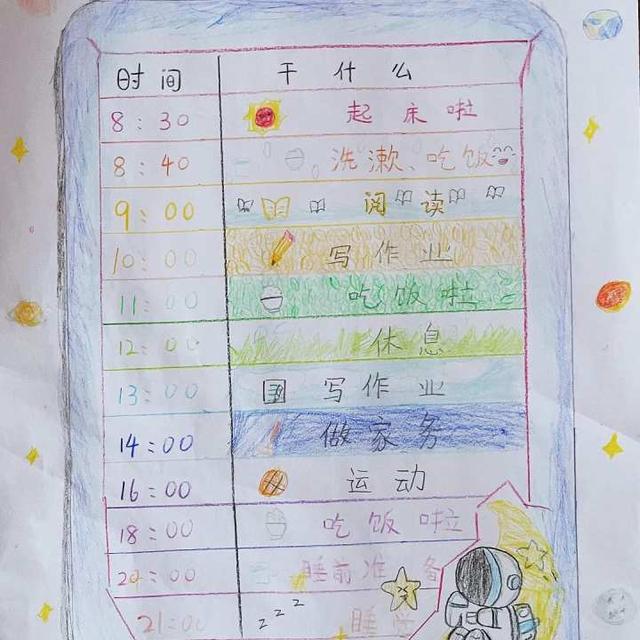 时间 干什么
8:30 起床啦
8:40 洗漱、吃饭
9:00 阅读
10:00 写作业
11:00 吃饭啦
12:00 休息
13:00 写作业
14:00 做家务
16:00 运动
18:00 吃饭啦
20:00 睡前准备
21:00 zzz 睡觉